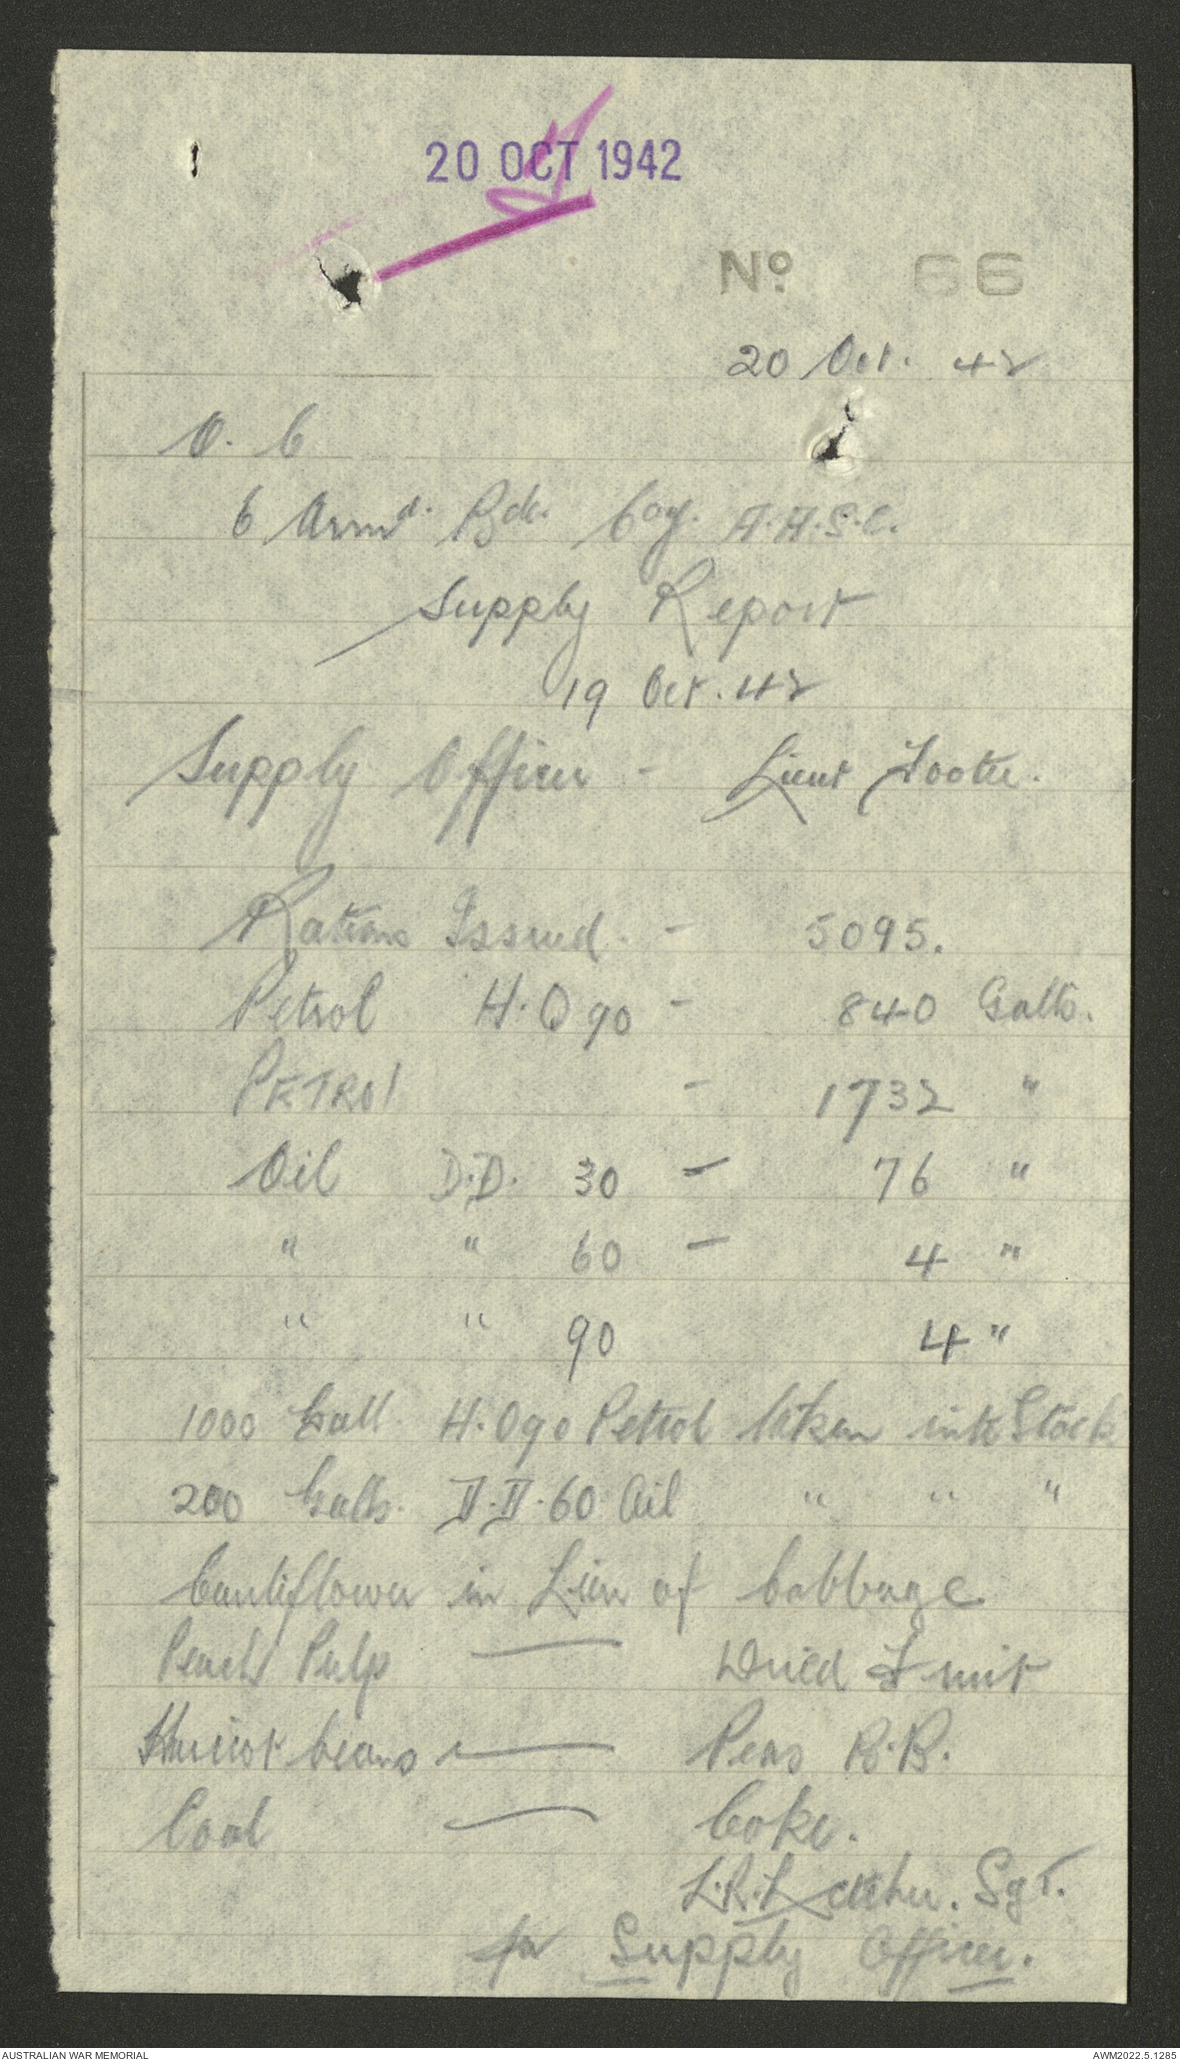 20 OCT 1942
No 66
20 Oct. 42
O. C
6 Armd. Bde. Coy. A.A.S.C.
Supply Report
19 Oct. 42
Supply Officer - Lieut Foote.
Rations Issued. - 5095.
Petrol H.O 90 - 840 Galls.
PETROl - 1732 "
Oil D.D. 30 - 76 "
" " 60 - 4 "
" " 90 4 "
1000 Gall. H.O 90 Petrol taken into Stock
200 Galls. D.D. 60 Oil " " "
Cauliflower in Lieu of Cabbage
Peach Pulp — Dried Fruit
Haricot beans — Peas B.B.
Coal — Coke.
Sgt.
for Supply Officer.
AUSTRALIAN WAR MEMORIAL
AWM2022.5.1285